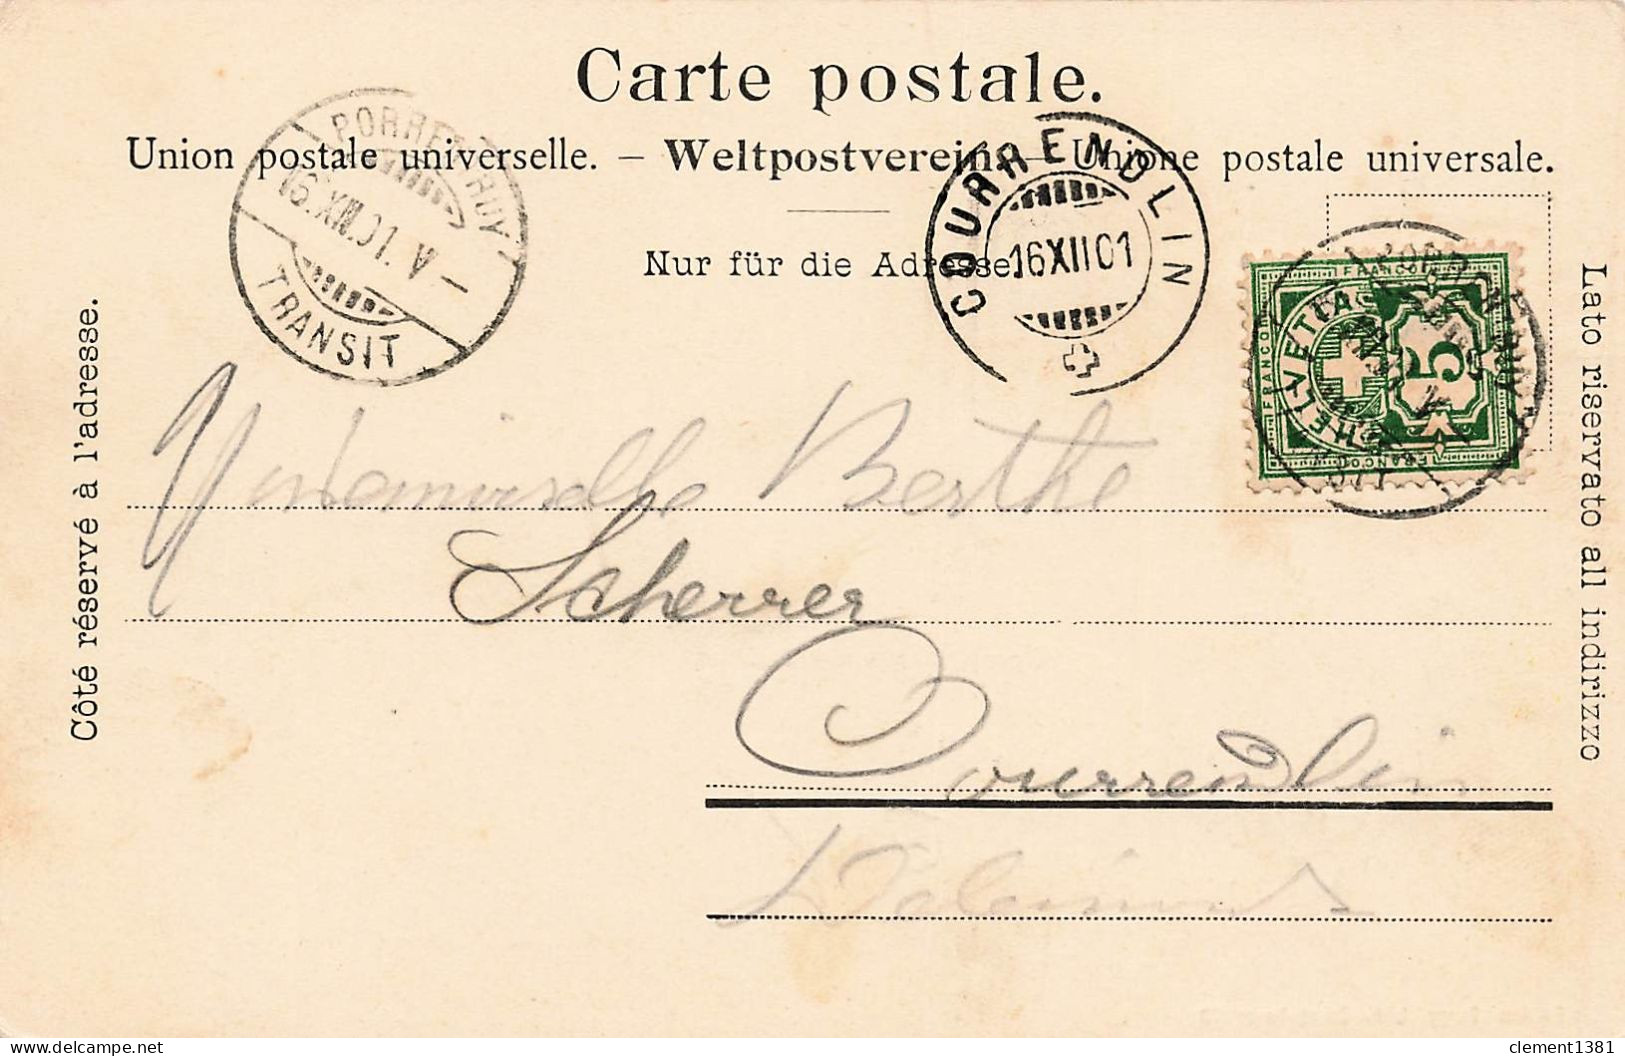 Carte postale.
Union postale universelle. – Weltpostverein. – Unione postale universale.
Nur für die Adresse.
Côté réservé à l'adresse.
Lato riservato all indirizzo
PORRENTRUY
16.XII.01. V –
TRANSIT
COURRENDLIN
16 XII 01
FRANCO
FRANCO
FRANCO
HELVETIA
5
Mademoiselle Berthe
Scherrer
Courrendlin
clement1381